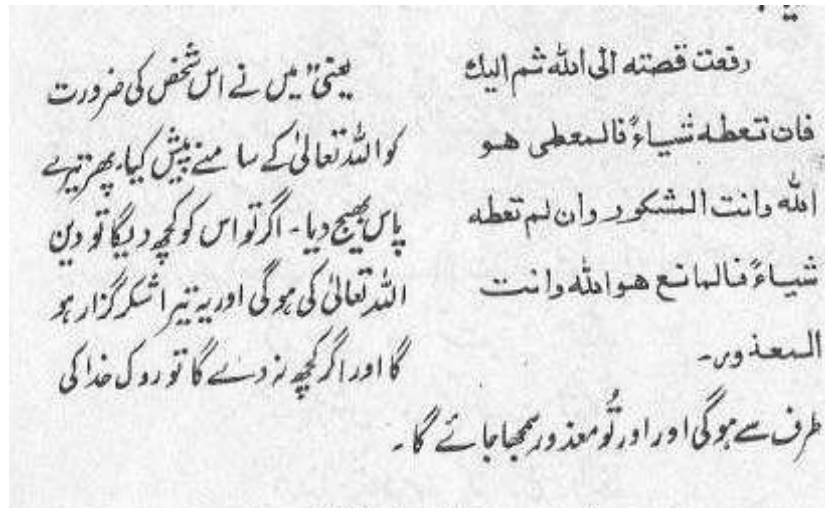 رفعت قصته الى الله ثم اليك
فان تعطه شياءً فالمعطى هو
الله وانت المشكور وان لم تعطه
شياءً فالمانع هو الله وانت
المعذور۔
یعنی" میں نے اس شخص کی ضرورت
کو اللہ تعالیٰ کے سامنے پیش کیا۔ پھر تیرے
پاس بھیج دیا۔ اگر تو اس کو کچھ دیگا تو دین
اللہ تعالیٰ کی ہوگی اور یہ تیرا شکر گزار ہو
گا اور اگر کچھ نہ دے گا تو روک خدا کی
طرف سے ہوگی اور اور تُو معذور سمجھا جائے گا۔